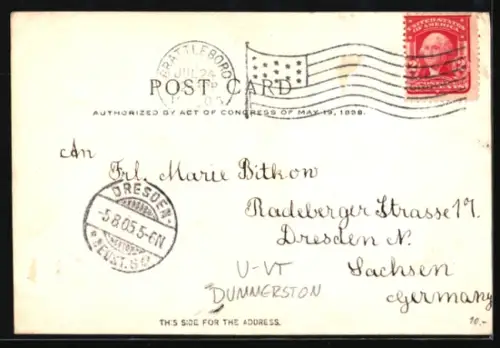 BRATTLEBORO
JUL 24
UNITED STATES
OF AMERICA
POST CARD
AUTHORIZED BY ACT OF CONGRESS OF MAY 19, 1898.
An
Frl. Marie Bitkow
Radeberger Strasse 17.
Dresden N.
Sachsen
Germany
DRESDEN-
-5.8.05.5-6N
NEUST.
U-VT
DUMMERSTON
THIS SIDE FOR THE ADDRESS.
10.-